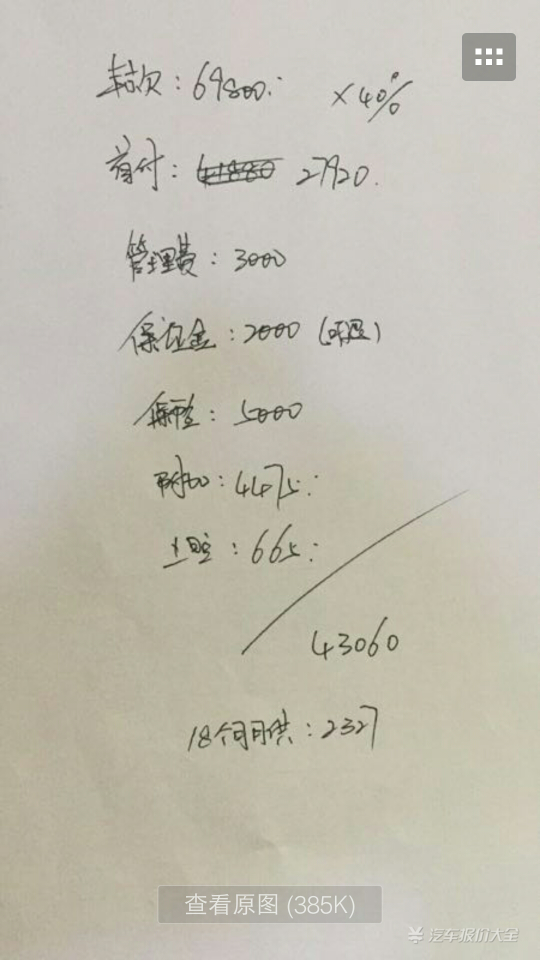 车款：69800. ×40%
首付：41880 27920.
管理费：3000
保证金：2000（可退）
保险：5000
附加：4475.
上户：665.
43060
18个月月供：2327
查看原图 (385K)
汽车报价大全